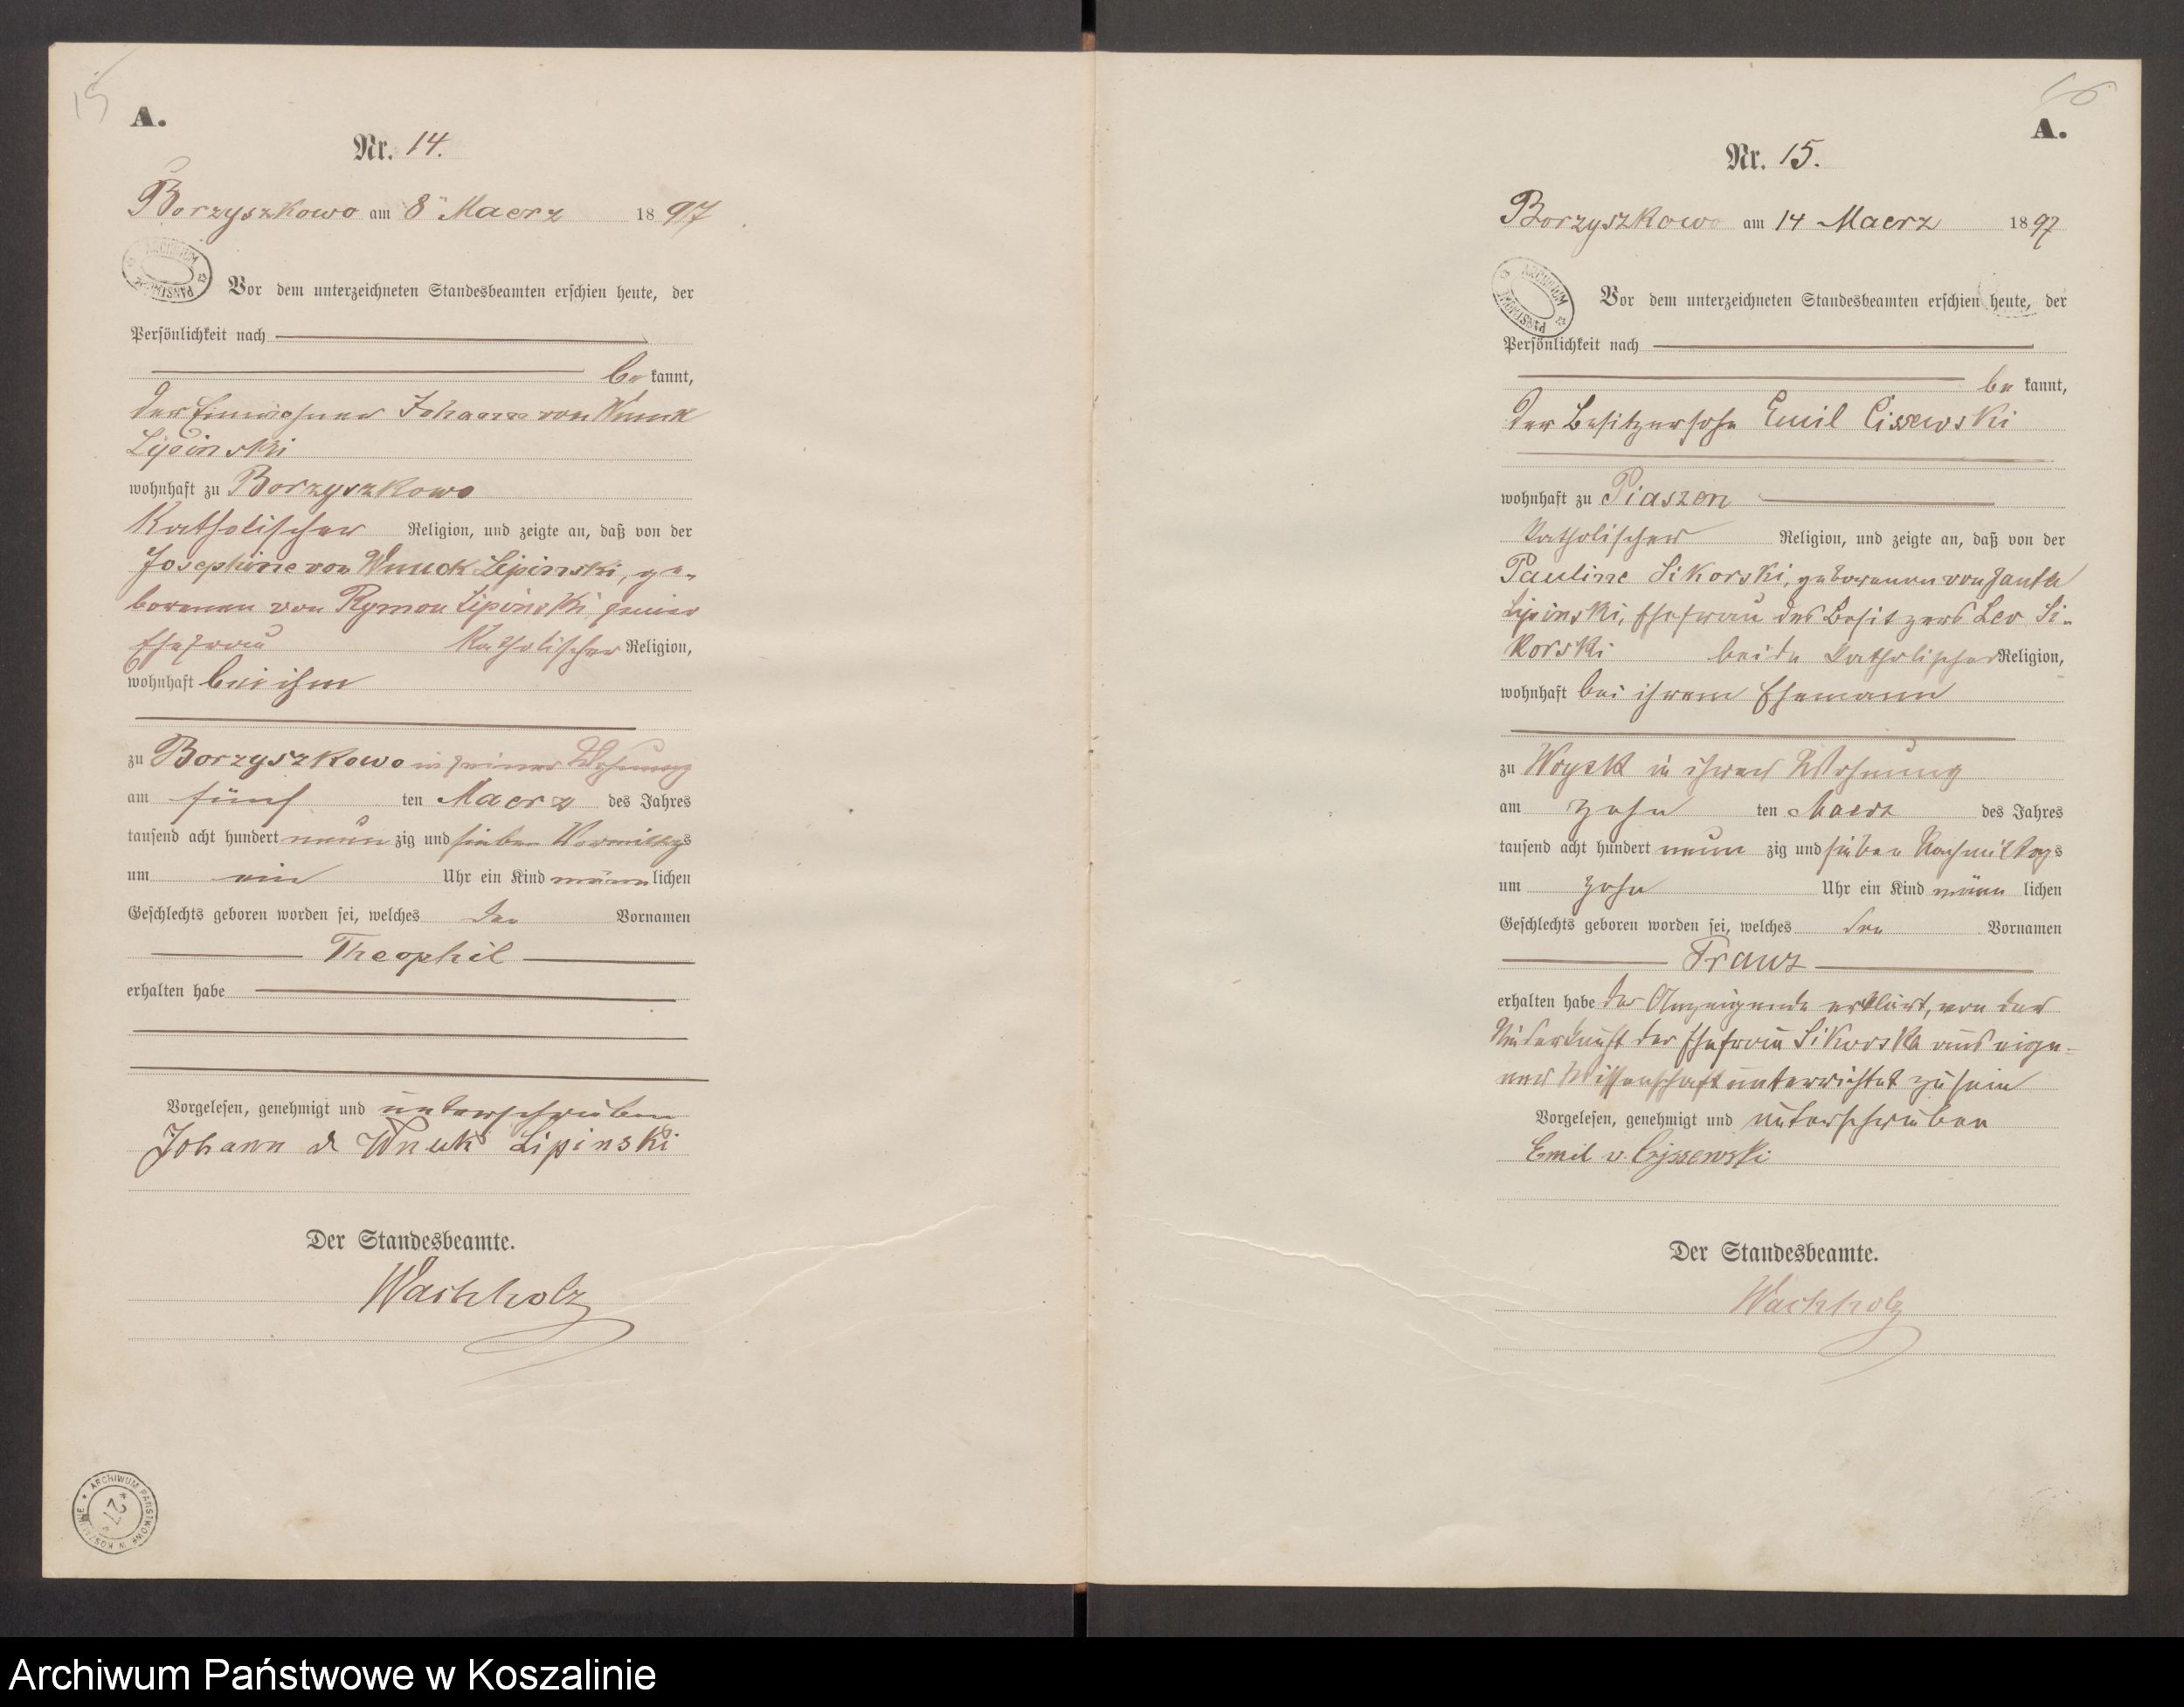 15
A.
Nr. 14.
Borzyszkowo am 8 Maerz 1897
Vor dem unterzeichneten Standesbeamten erschien heute, der
Persönlichkeit nach
be kannt,
der Einwohner Johann von Wnuck
Lipinski
wohnhaft zu Borzyszkowo
Katholischer Religion, und zeigte an, daß von der
Josephine von Wnuck Lipinski, ge-
borenen von Rymon Lipinski seiner
Ehefrau Katholischer Religion,
wohnhaft bei ihm
zu Borzyszkowo in seiner Wohnung
am fünf ten Maerz des Jahres
tausend acht hundert neun zig und sieben Vormittags
um ein Uhr ein Kind männlichen
Geschlechts geboren worden sei, welches den Vornamen
Theophil
erhalten habe
Vorgelesen, genehmigt und unterschrieben
Johann v Wnuk Lipinski
Der Standesbeamte.
Wachholz
ARCHIWUM PAŃSTWOWE W KOSZALINIE
27
16
A.
Nr. 15.
Borzyszkowo am 14 Maerz 1897
Vor dem unterzeichneten Standesbeamten erschien heute, der
Persönlichkeit nach
be kannt,
der Besitzersohn Emil Cissewski
wohnhaft zu Piaszen
Katholischer Religion, und zeigte an, daß von der
Pauline Sikorski, geborenen von Janta
Lipinski, Ehefrau des Besitzers Leo Si-
korski beide Katholischer Religion,
wohnhaft bei ihrem Ehemann
zu Woysk in ihrer Wohnung
am zehn ten Maerz des Jahres
tausend acht hundert neun zig und sieben Nachmittags
um zehn Uhr ein Kind männ lichen
Geschlechts geboren worden sei, welches den Vornamen
Franz
erhalten habe der Anzeigende erklärt, von der
Niederkunft der Ehefrau Sikorska aus eige-
ner Wissenschaft unterrichtet zu sein
Vorgelesen, genehmigt und unterschrieben
Emil v. Cyssewski
Der Standesbeamte.
Wachholz
Archiwum Państwowe w Koszalinie